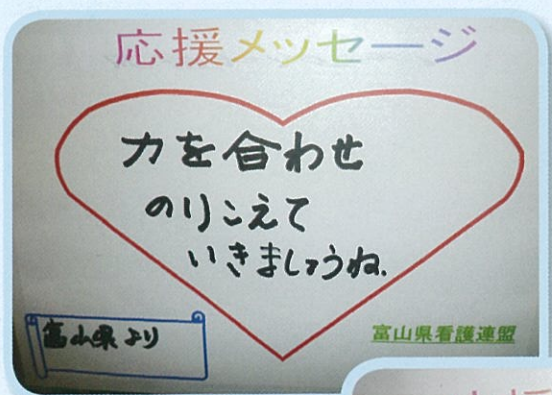 応援メッセージ
力を合わせ
のりこえて
いきましょうね.
富山県より
富山県看護連盟